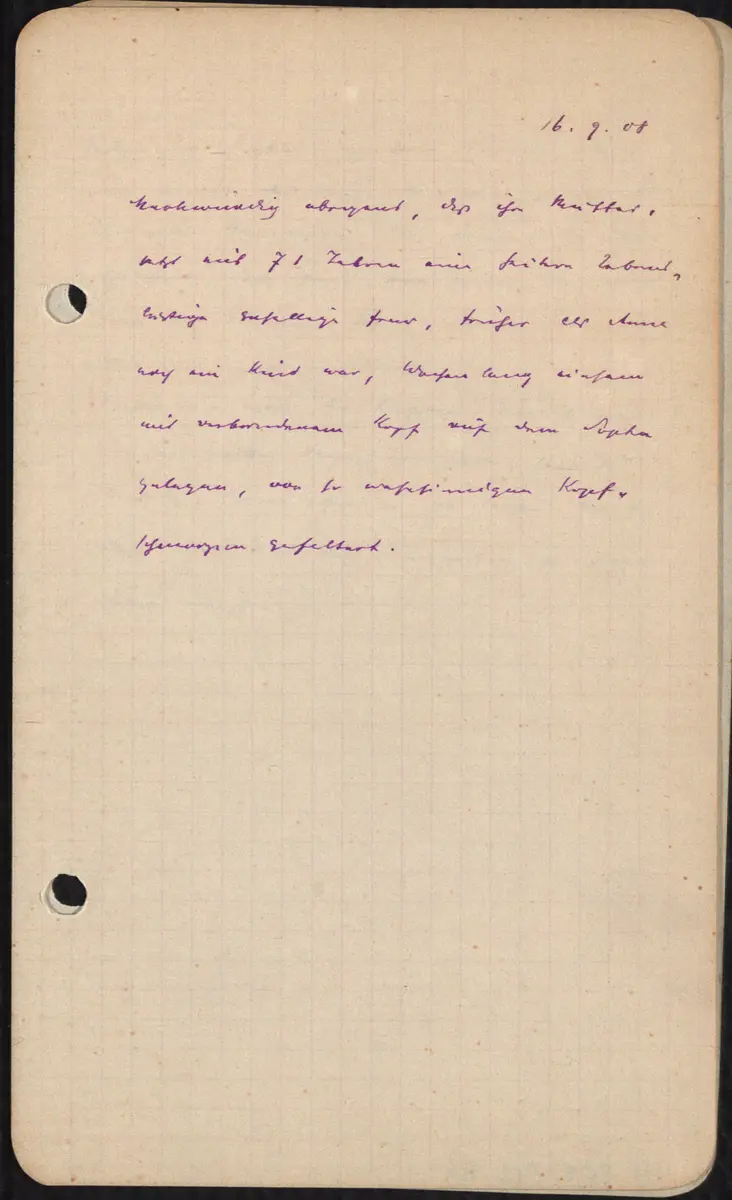 16. 9. 08
Merkwürdig übrigens, dass ihre Mutter,
jetzt mit 71 Jahren eine heitere lebens-
lustige gesellige Frau, früher als Anna
noch ein Kind war, Wochen lang einsam
mit verbundenem Kopf auf dem Sopha
gelegen, von so wahnsinnigen Kopf-
schmerzen gefoltert.